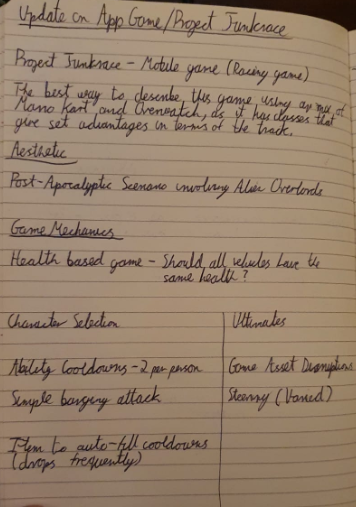 Update on App Game/Project Junkrace
Project Junkrace - Mobile game (Racing game)
The best way to describe this game using a mix of
Mario Kart and Overwatch, as it has classes that
give set advantages in terms of the track.
Aesthetic
Post-Apocalyptic Scenario involving Alien Overlords
Game Mechanics
Health based game - Should all vehicles have the
same health?
Character Selection
Ability Cooldowns - 2 per person
Simple barging attack
Item to auto-fill cooldowns
(drops frequently)
Ultimates
Game Asset Disruptions
(Varied)